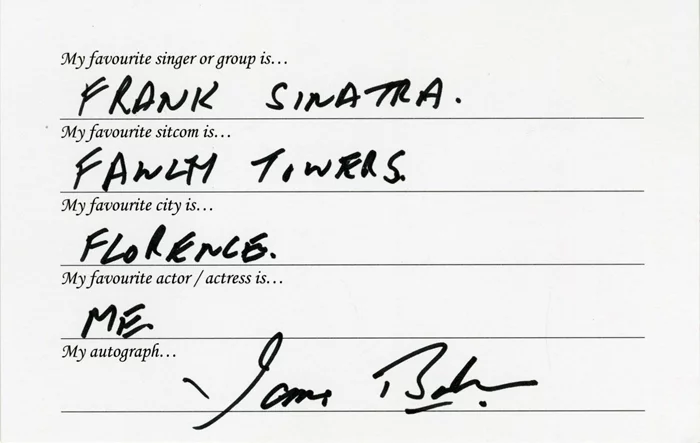 My favourite singer or group is...
FRANK SINATRA.
My favourite sitcom is...
FAWLTY TOWERS.
My favourite city is...
FLORENCE.
My favourite actor / actress is...
ME
My autograph...